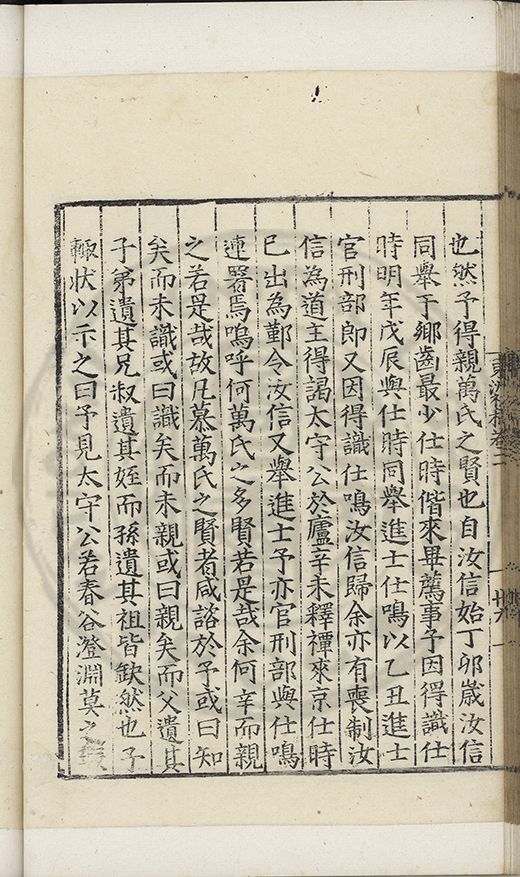 也然予得親萬氏之賢也自汝信始丁卯歳汝信
同舉于鄉齒最少仕時偕來畢薦事予因得識仕
時明年戊辰與仕時同舉進士仕鳴以乙丑進士
官刑部郎又因得識仕鳴汝信歸余亦有喪制汝
信為道主得謁太守公於廬辛未釋禫來京仕時
巳出為鄞令汝信又舉進士予亦官刑部與仕鳴
連署焉嗚呼何萬氏之多賢若是哉余何幸而親
之若是哉故凡慕萬氏之賢者咸諮於予或曰知
矣而未識或曰識矣而未親或曰親矣而父遺其
子弟遺其兄叔遺其姪而孫遺其祖皆歉然也予
輙状以示之曰予見太守公若春谷澄淵莫之